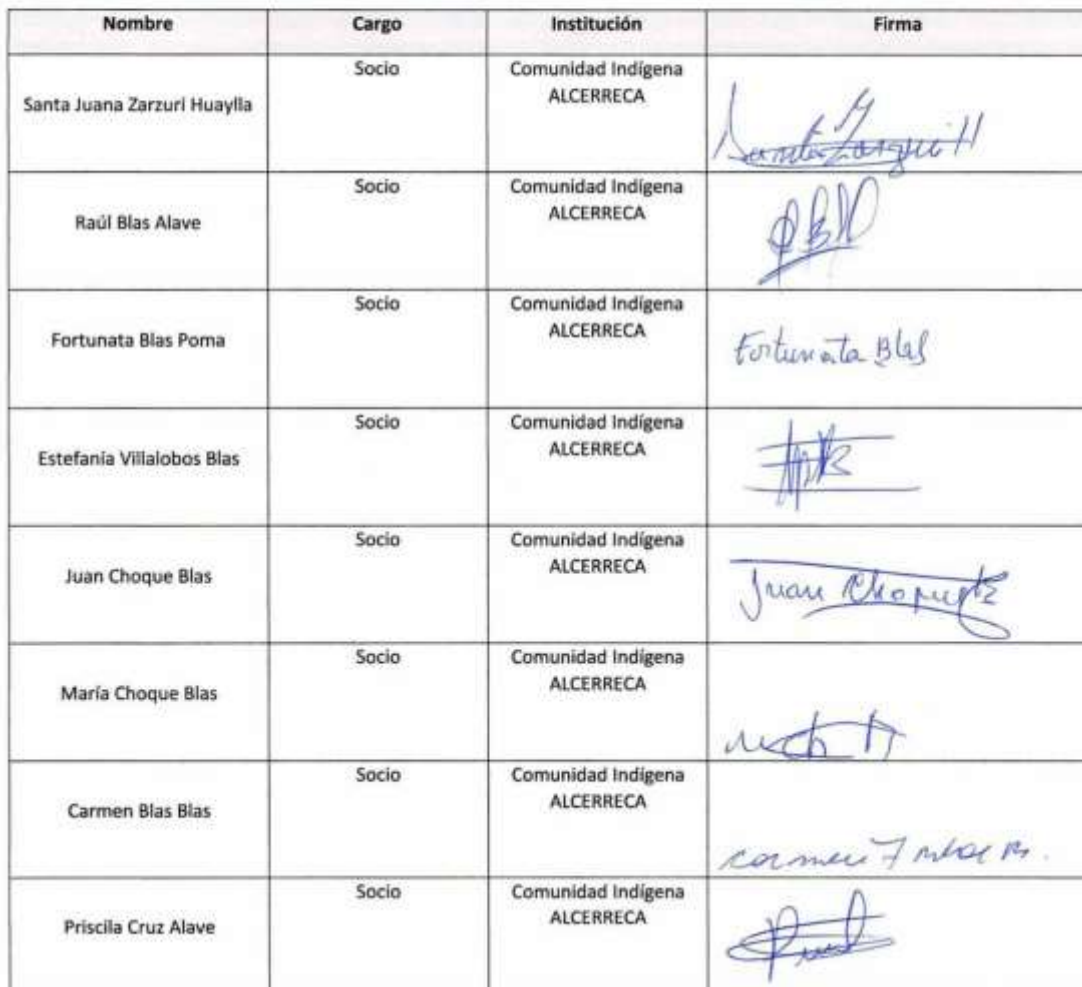 Nombre Cargo Institución Firma
Santa Juana Zarzuri Huaylla Socio Comunidad Indígena
ALCERRECA
Raúl Blas Alave Socio Comunidad Indígena
ALCERRECA
Fortunata Blas Poma Socio Comunidad Indígena
ALCERRECA
Fortunata Blas
Estefanía Villalobos Blas Socio Comunidad Indígena
ALCERRECA
Juan Choque Blas Socio Comunidad Indígena
ALCERRECA
Juan Choque
María Choque Blas Socio Comunidad Indígena
ALCERRECA
Carmen Blas Blas Socio Comunidad Indígena
ALCERRECA
Priscila Cruz Alave Socio Comunidad Indígena
ALCERRECA